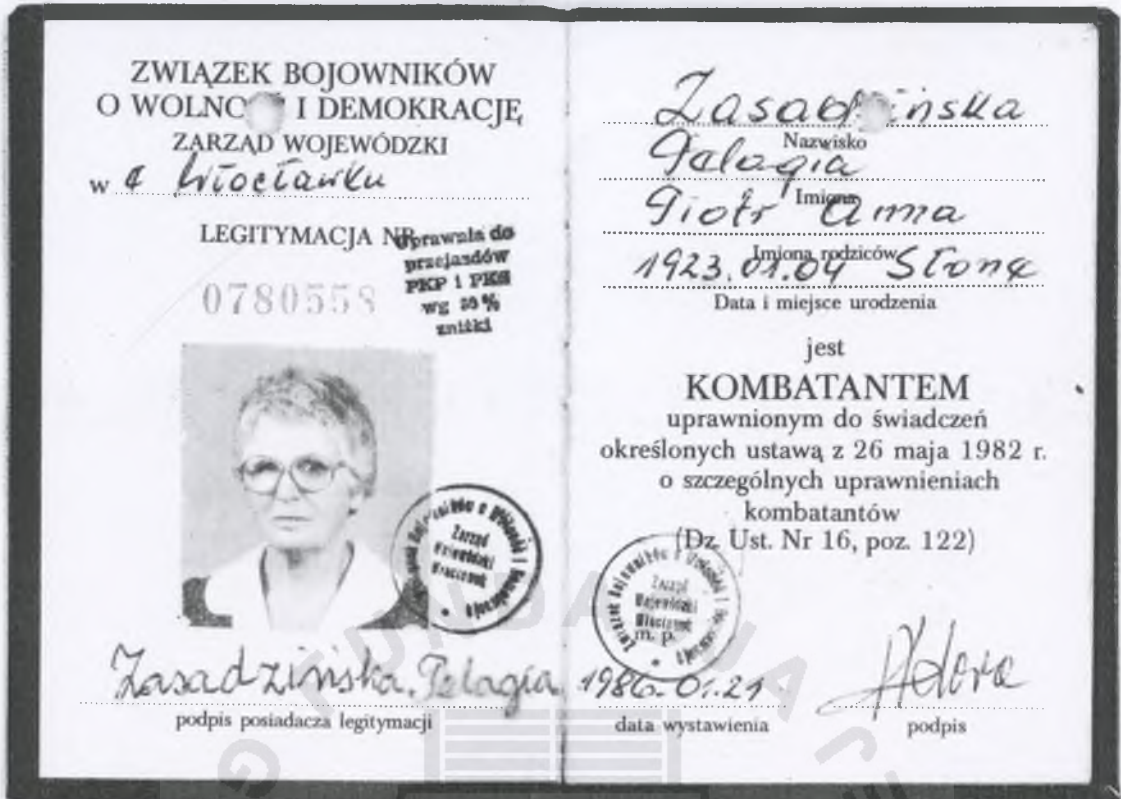 ZWIĄZEK BOJOWNIKÓW
O WOLNOŚĆ I DEMOKRACJĘ
ZARZĄD WOJEWÓDZKI
w Włocławku
LEGITYMACJA NR
Uprawnia do
przejazdów
PKP i PKS
wg 50 %
zniżki
0780558
Związek Bojowników o Wolność i Demokrację
Zarząd
Wojewódzki
Włocławek
Zasadzińska Pelagia
podpis posiadacza legitymacji
Zasadzińska
Nazwisko
Pelagia
Imiona
Piotr Anna
Imiona rodziców
1923.01.04 Słone
Data i miejsce urodzenia
jest
KOMBATANTEM
uprawnionym do świadczeń
określonych ustawą z 26 maja 1982 r.
o szczególnych uprawnieniach
kombatantów
(Dz. Ust. Nr 16, poz. 122)
Związek Bojowników o Wolność i Demokrację
Zarząd
Wojewódzki
Włocławek
m. p.
1986.01.21
data wystawienia
podpis
FUNDACJA